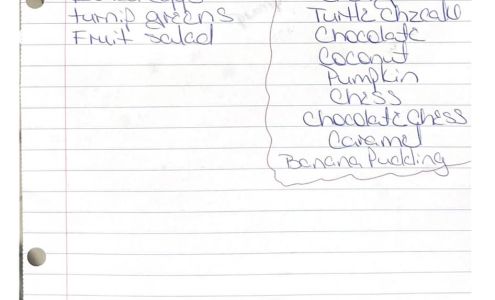 turnip greens
Fruit salad
Turtle Chzcake
Chocolate
Coconut
Pumpkin
Chess
Chocolate Chess
Caramel
Banana Pudding